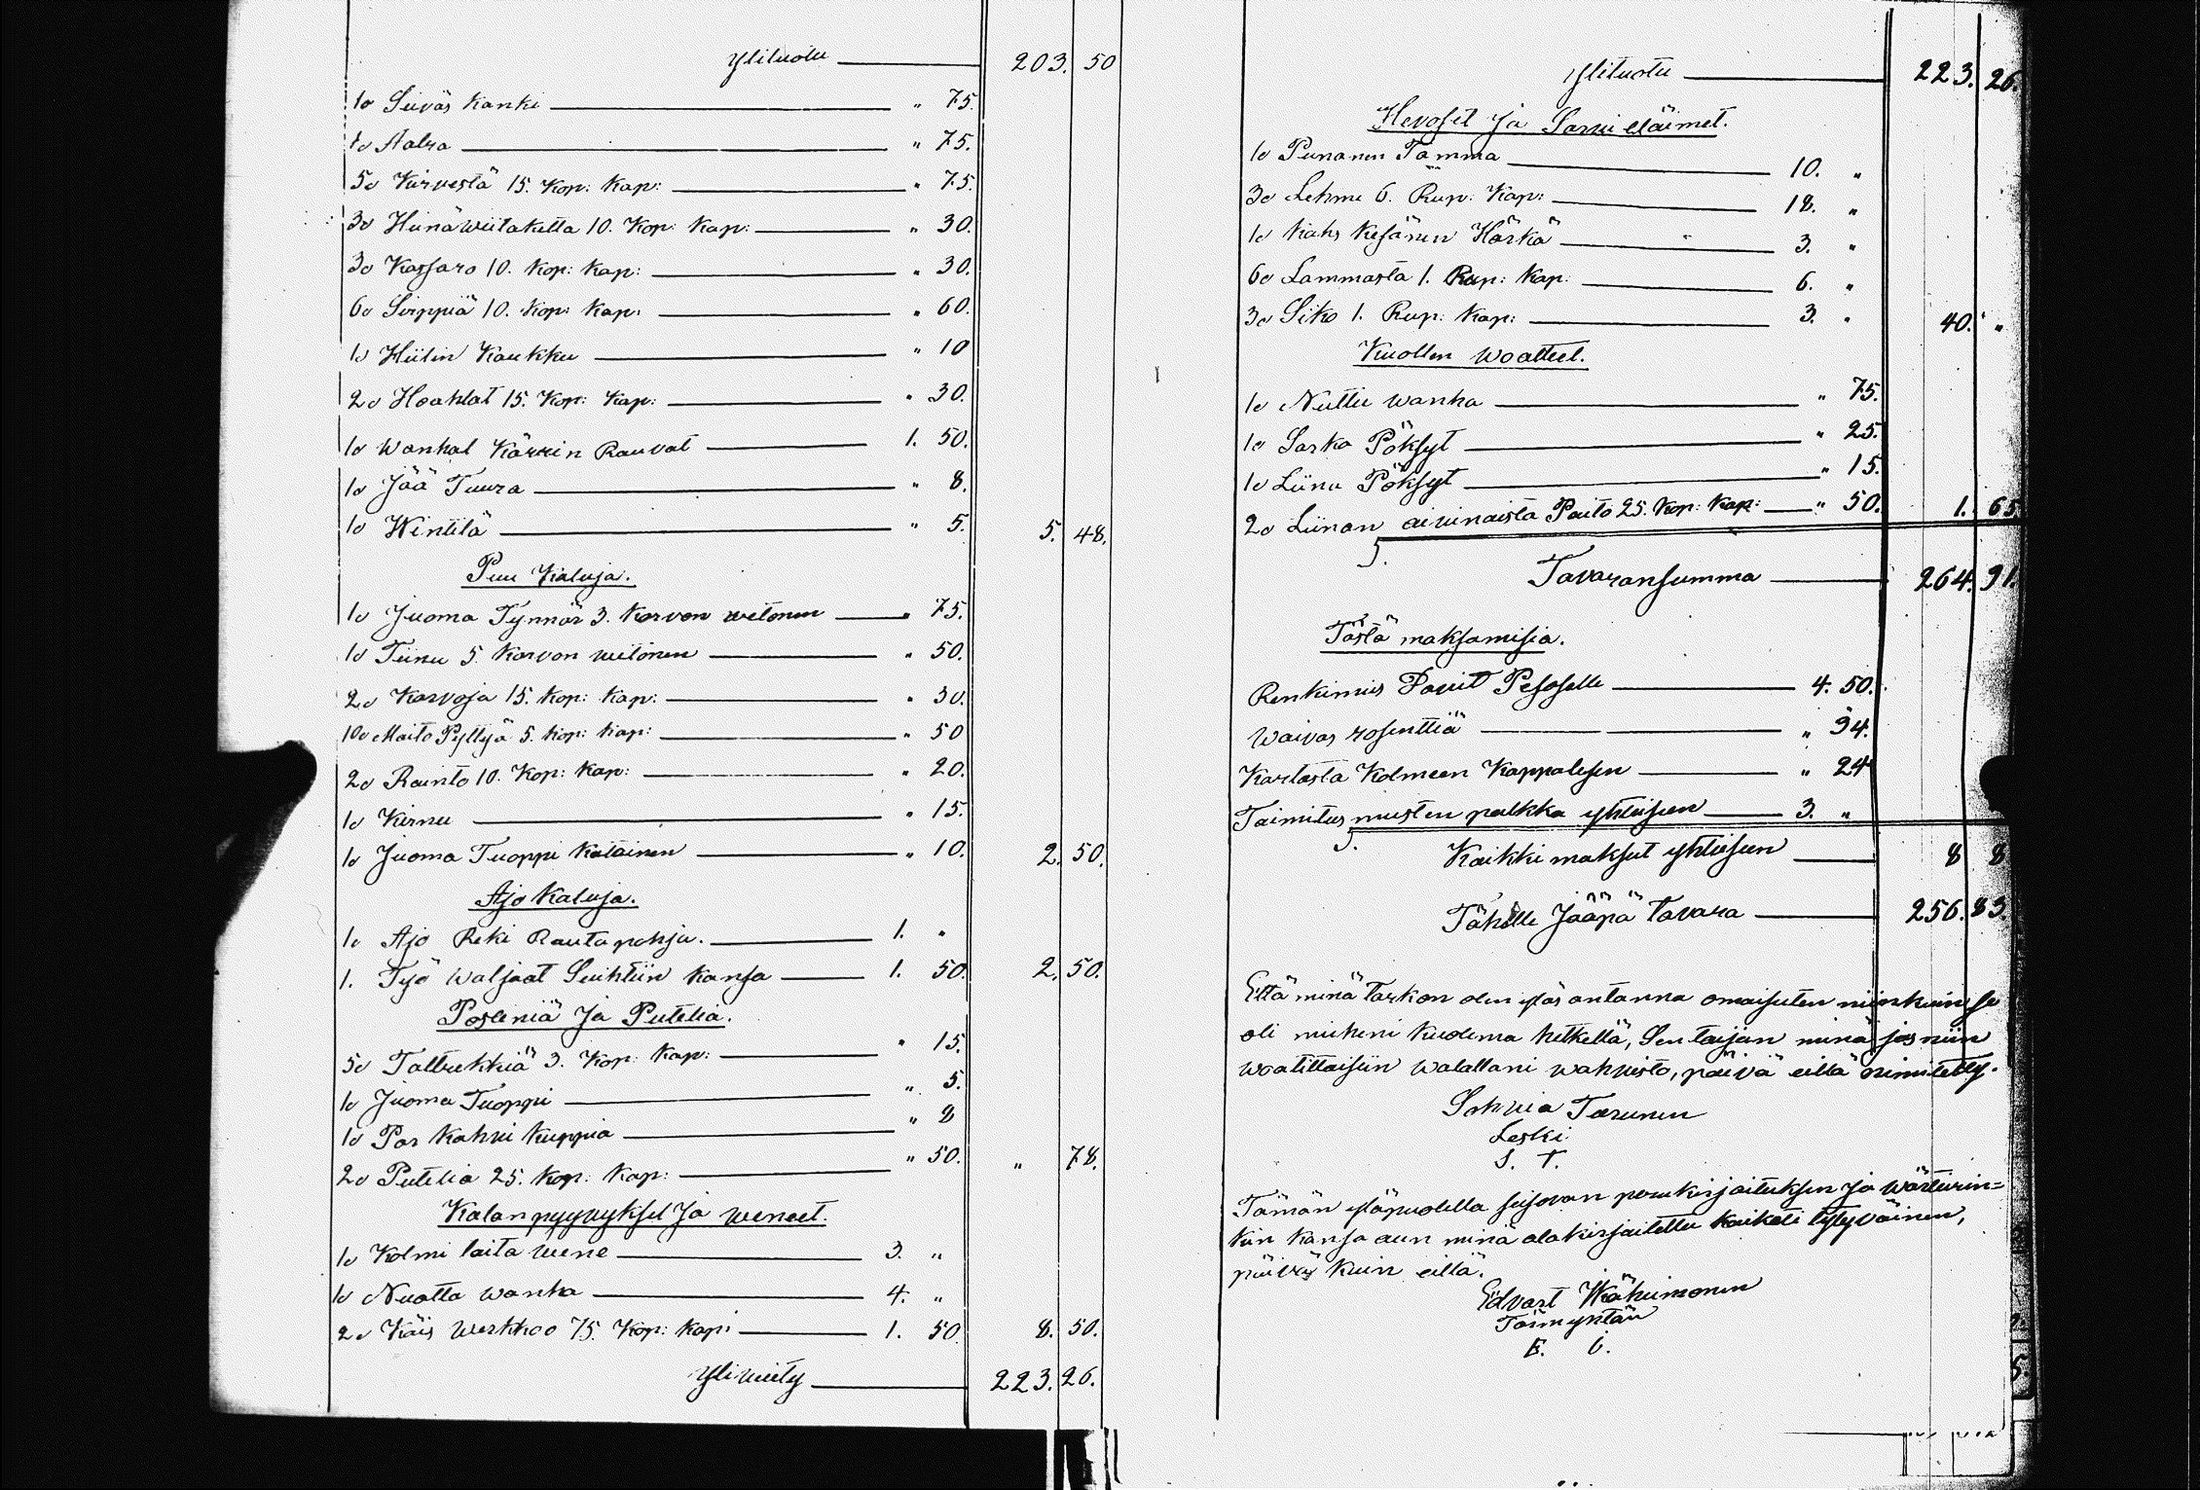 Ylituotu 203. 50
1a Seiväs Kanki " 75.
1a Aatra " 75.
5a Kirvestä 15. Kop: Kap: " 75.
3a Heinäwiitaketta 10. Kop: Kap: " 30.
3a Kassaro 10. Kop: Kap: " 30.
6a Sirppiä 10. Kop: Kap: " 60.
1a Hiilin Koukku " 10
2a Hoahlat 15. Kop: Kap: " 30.
1a Wanhat Kärrin Rauvat 1. 50.
1a Jää Tuura " 8.
1a Wintilä " 5. 5. 48.
Puu Kaluja.
1a Juoma Tynnör 3. Korvon wetonen " 75.
1a Tiinu 5. Korvon wetonen " 50.
2a Korvoja 15. Kop: Kap: " 30.
10a Maito Pyttyä 5. Kop: Kap: " 50
2a Rainto 10. Kop: Kap: " 20.
1a Kirnu " 15.
1a Juoma Tuoppi Katainen " 10. 2. 50.
Ajo Kaluja.
1a Ajo Reki Rautapohja. 1. "
1. Työ Waljaat Suihtiin Kansa 1. 50. 2. 50.
Posleniä Ja Puteliä.
5a Taltrekkiä 3. Kop: Kap: " 15.
1a Juoma Tuoppi " 5.
1a Par Kahvi Kuppia " 8
2a Putelia 25. Kop: Kap: " 50. " 78.
Kalanpyyvykset Ja Weneet.
1a Kolmi laita Wene 3. "
1a Nuotta Wanha 4. "
2a Käis Werkkoo 75. Kop: Kap: 1. 50 8. 50.
Yliviety 223. 26.
Ylituotu 223. 26.
Hevoset Ja Sarvi eläimet.
1a Punanen Tamma 10. "
3a Lehme 6. Rup: Kap: 18. "
1a Kahs Kesänen Härkä 3. "
6a Lammasta 1. Rup: Kap: 6. "
3a Siko 1. Rup: Kap: 3. " 40. "
Kuollen Woatteet.
1a Nuttu Wanha " 75.
1a Sarka Pöksyt " 25.
1a Liinu Pöksyt " 15.
2a Liinan aivinaista Paito 25. Kop: Kap: " 50. 1. 65
Tavaransumma 264. 91.
Tästä maksamisia.
Renkimies Davit Pesoselle 4. 50.
Waivas rosenttiä " 34.
Kartasta Kolmeen Kappalesen " 24
Toimitus miesten palkka yhteisen 3. "
Kaikki maksut yhteisen 8 8
Tähelle Jääpä Tavara 256. 83.
Että minä Tarkon olen ylös antanna omaisuten niinkuin se
oli mieheni Kuolema hetkellä, Sen taijan minä jos niin
woatittaisiin walallani wahvisto, päivä eillä nimitetty.
Sohvia Tarunen
Leski
S. T.
Tämän yläpuolella seisovan perukirjaituksen Ja Wärteerin=
kin Kansa aun minä alakirjaitettu Kaikeli tytyväinen,
päivä Kuin eillä.
Edvart Wäkuimonen
E.